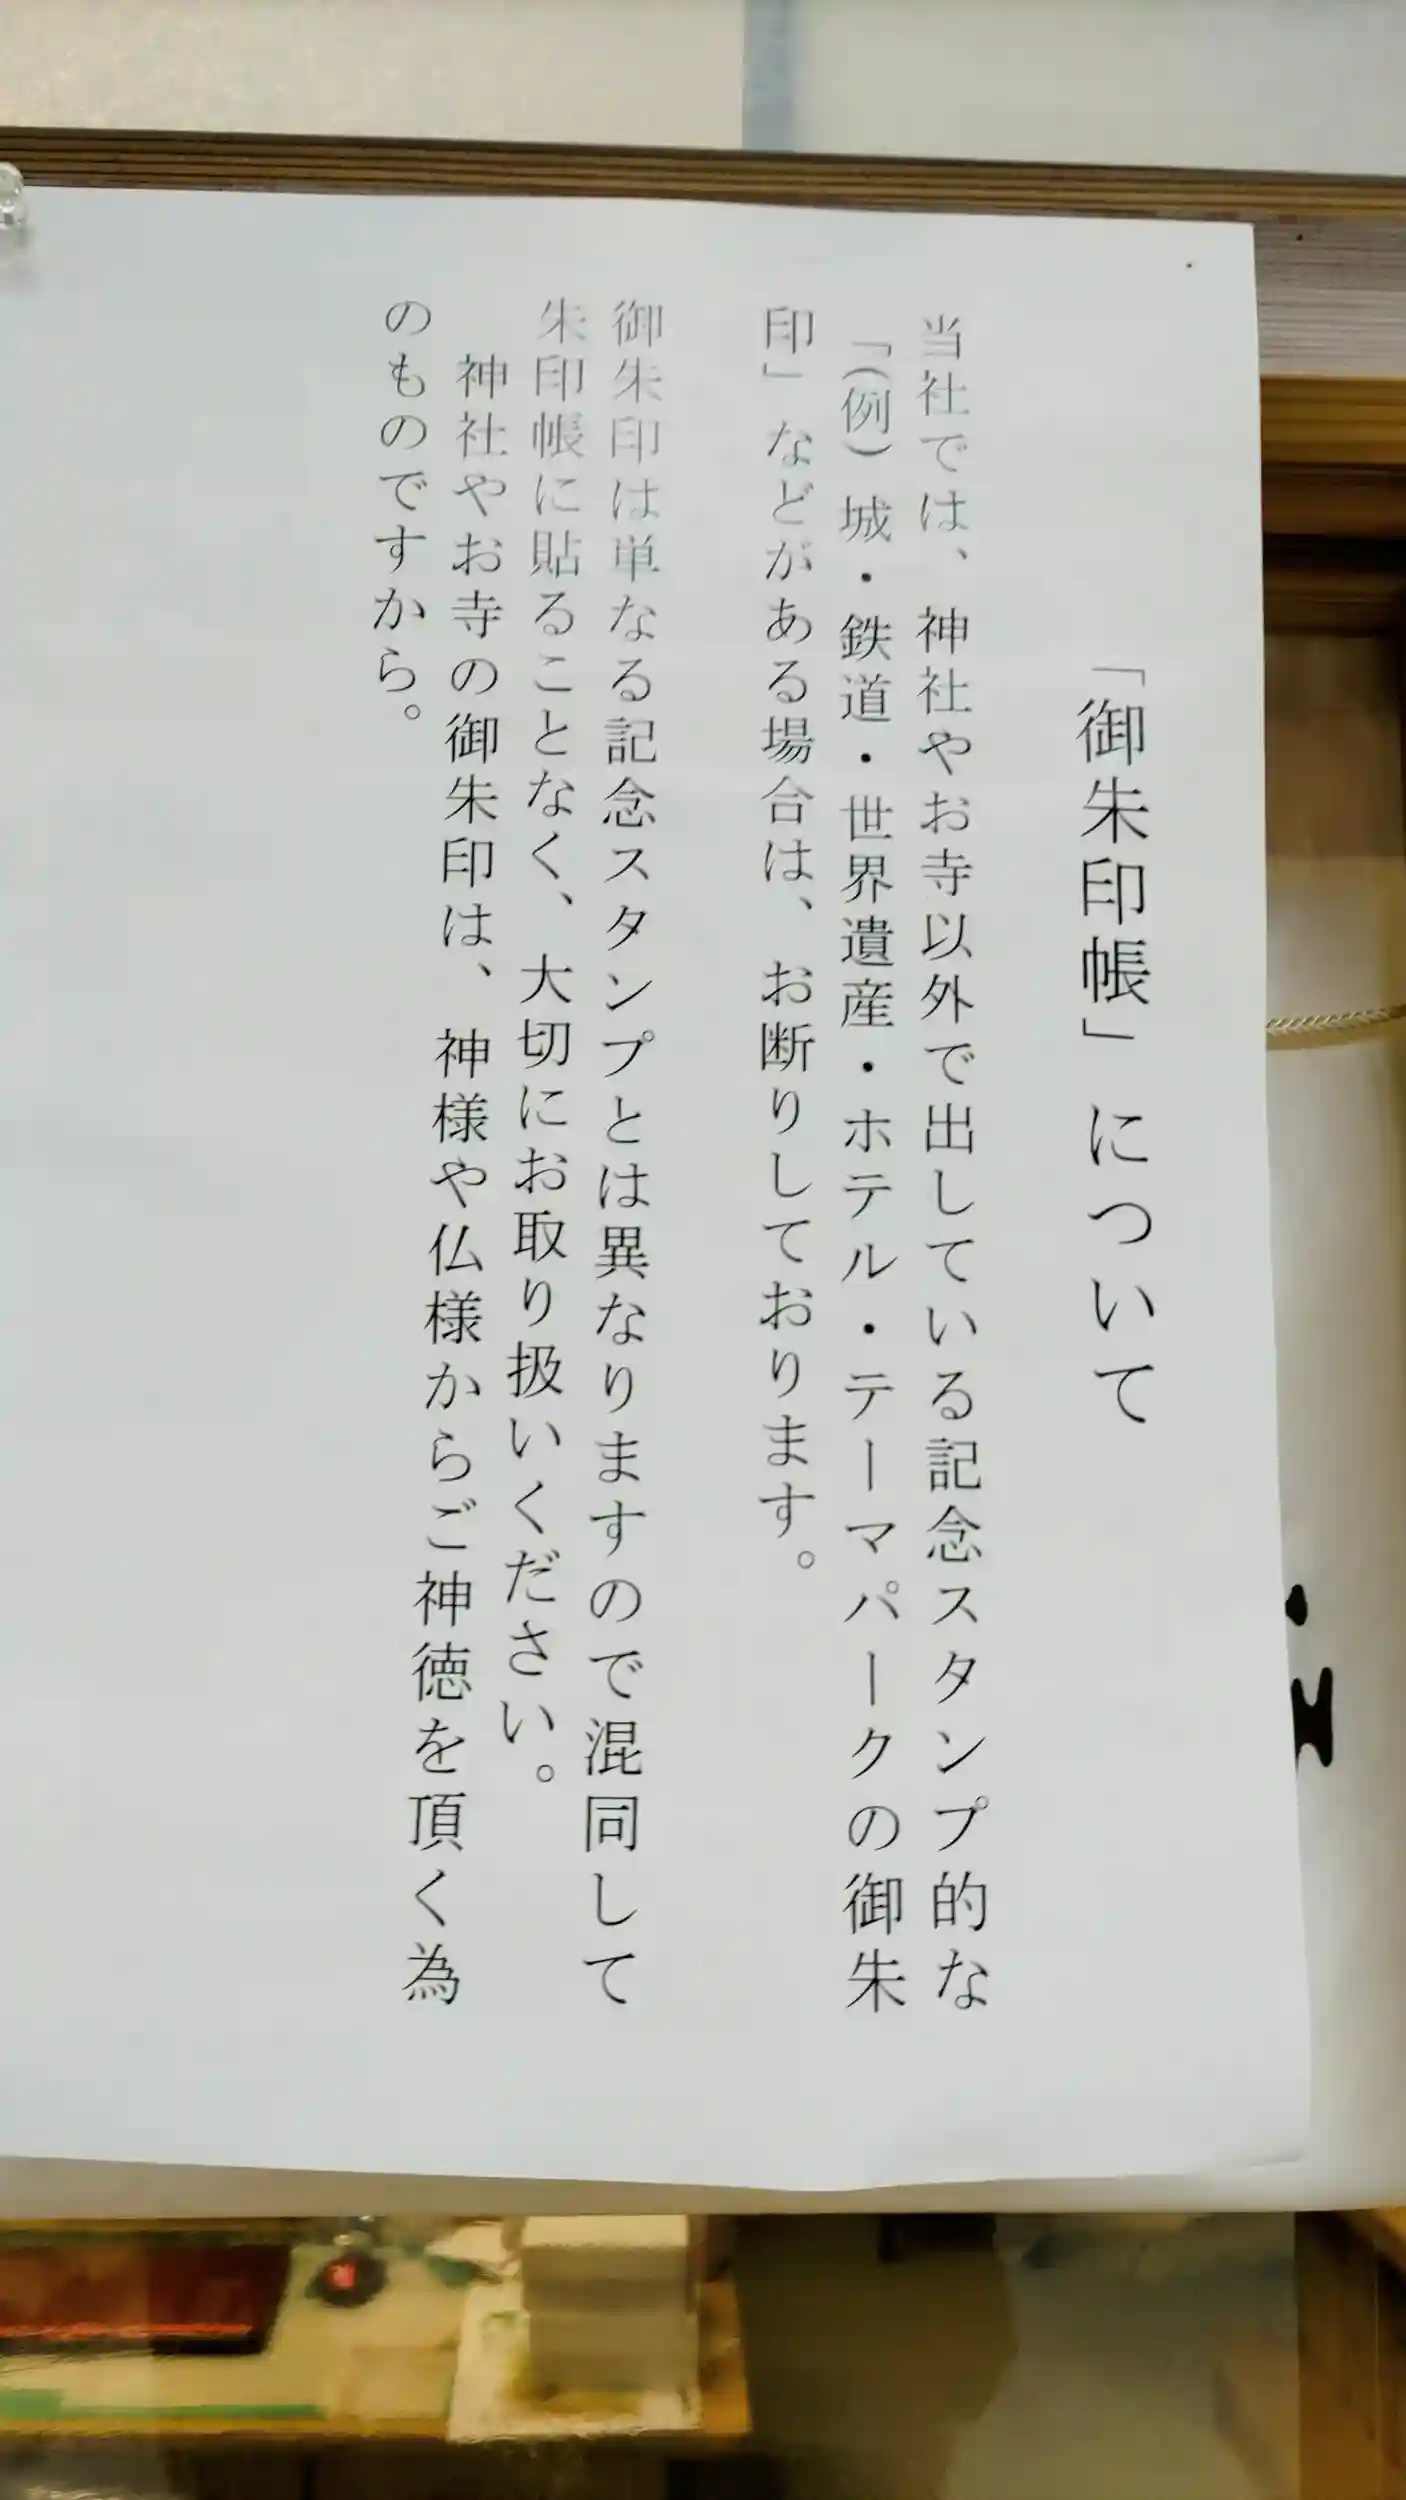 「御朱印帳」について
当社では、神社やお寺以外で出している記念スタンプ的な
「(例)城・鉄道・世界遺産・ホテル・テーマパークの御朱
印」などがある場合は、お断りしております。
御朱印は単なる記念スタンプとは異なりますので混同して
朱印帳に貼ることなく、大切にお取り扱いください。
神社やお寺の御朱印は、神様や仏様からご神徳を頂く為
のものですから。